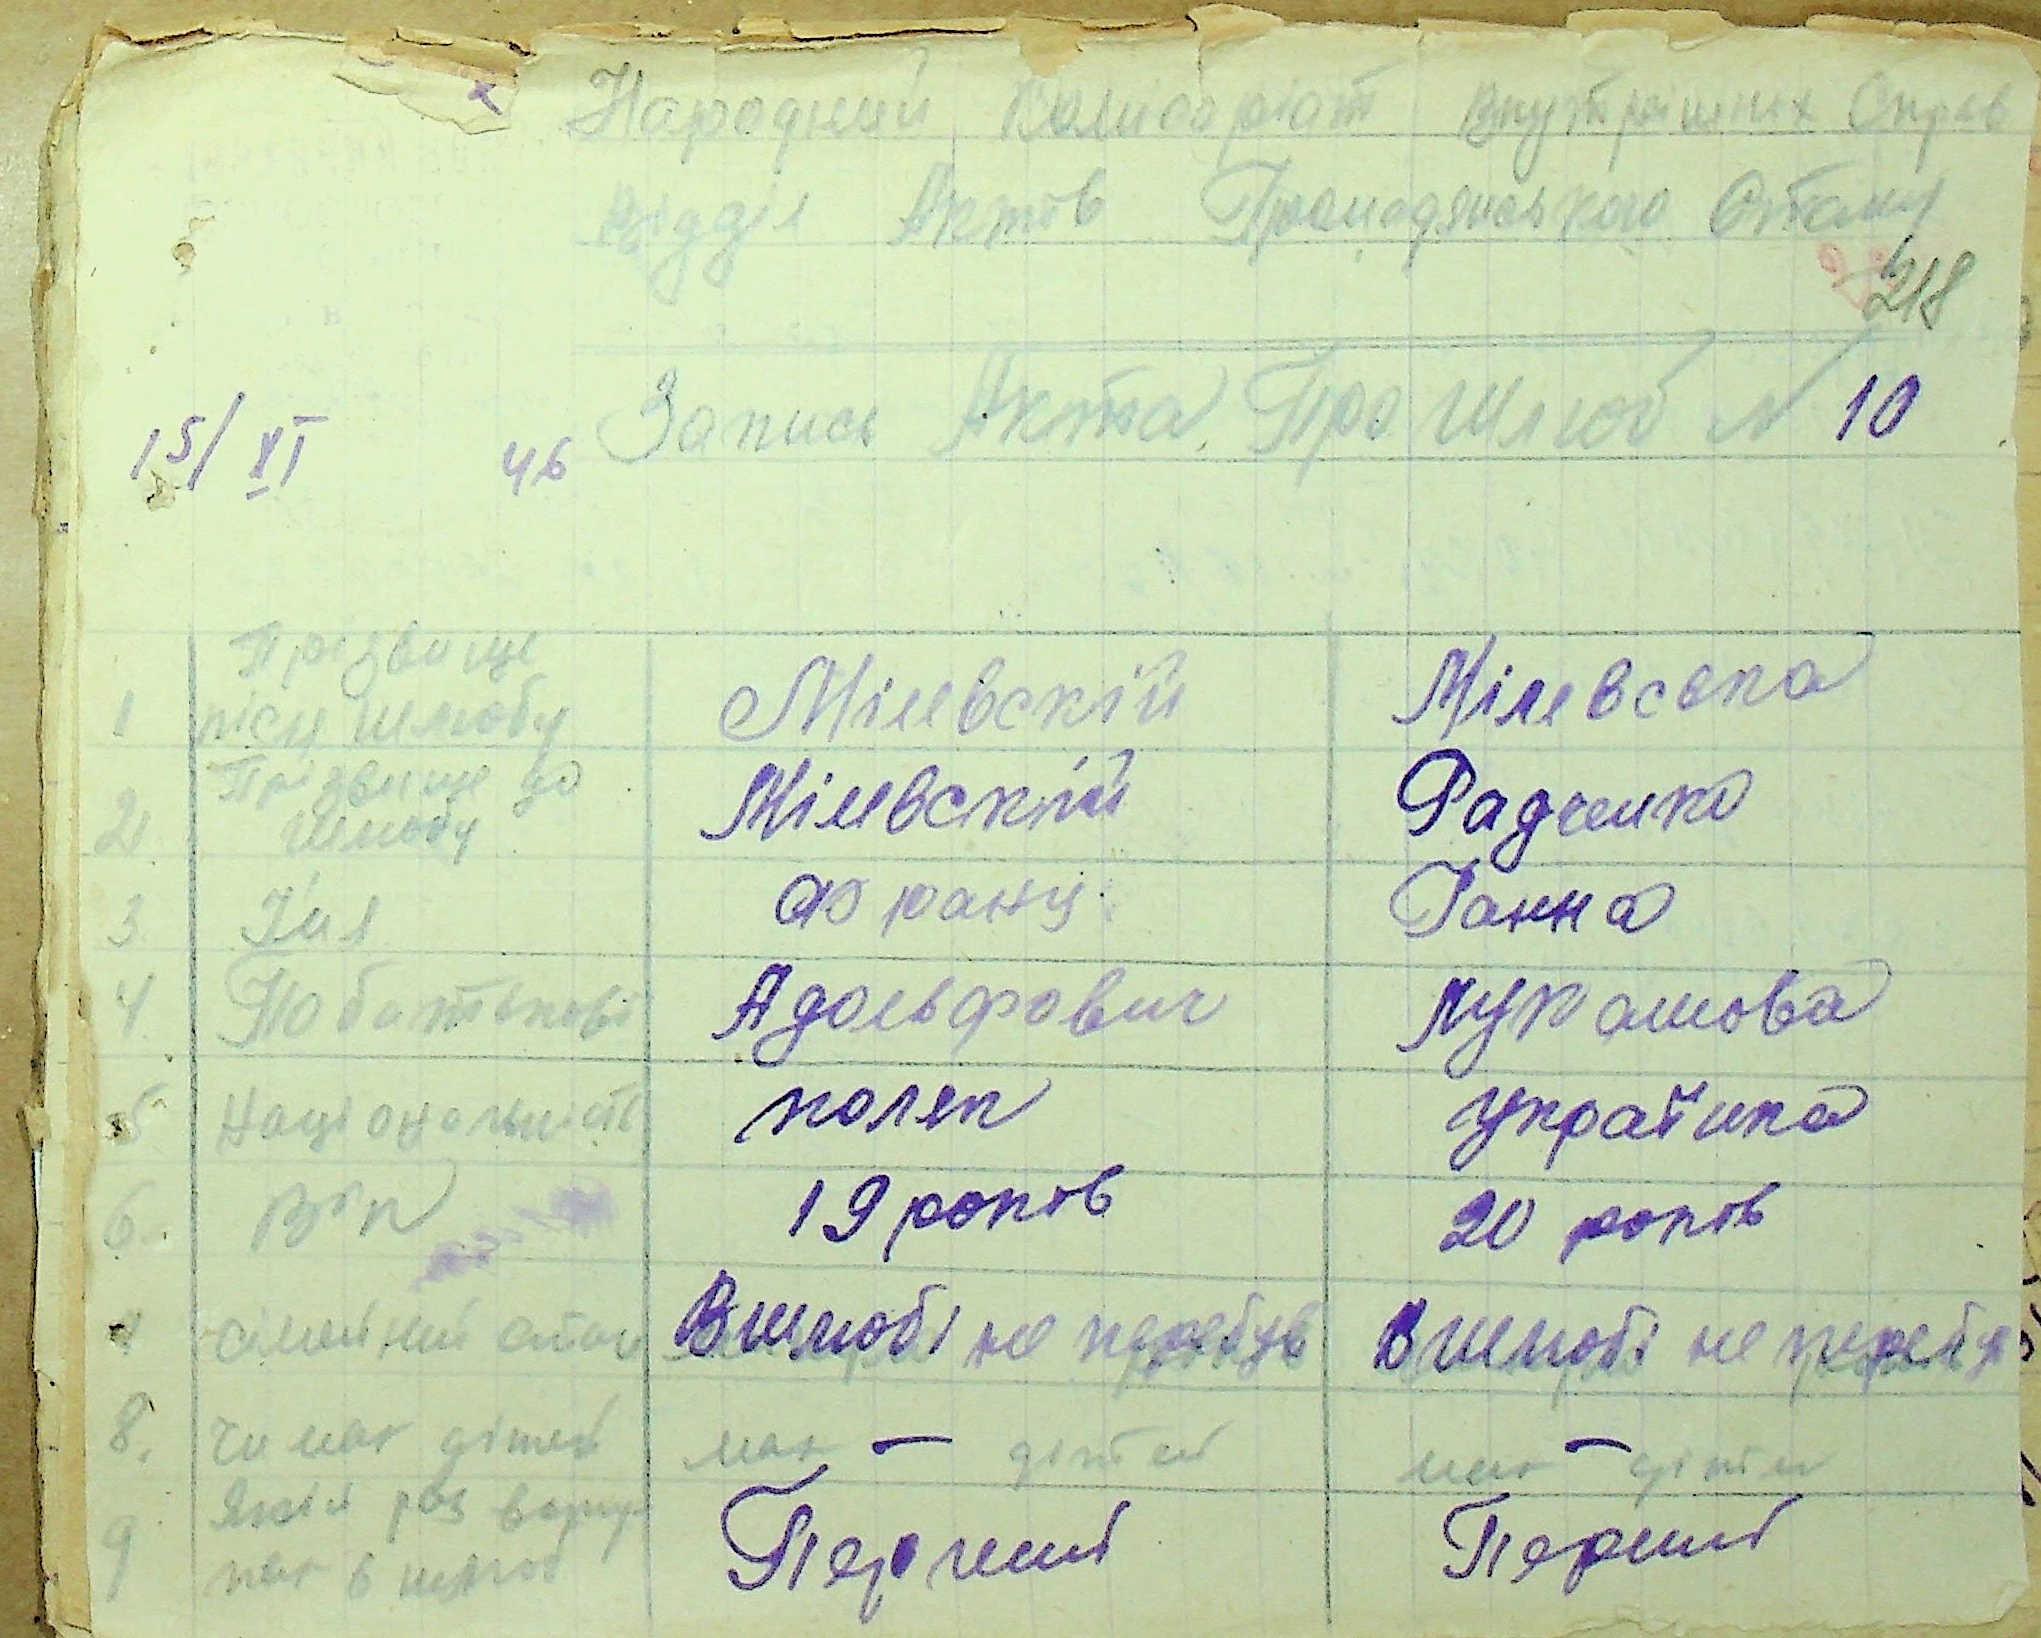 Народний Комисаріат Внутрішніх Справ
Відділ Актов Громадянського Стану
218
15/XI 46 Запись Акта Про Шлюб № 10
1 Прізвище після шлюбу Мілевскій Мілевська
2 Прізвище до шлюбу Мілевскій Радченко
3 Імя Франц Ганна
4 По батькові Адольфович Лукашова
5 Національність поляк українка
6. Вік 19 років 20 років
сімейний стан В шлюбі не перебув В шлюбі не перебув
8. Чи має дітей має — дітей має — дітей
9 Який раз вступає в шлюб Перший Перший